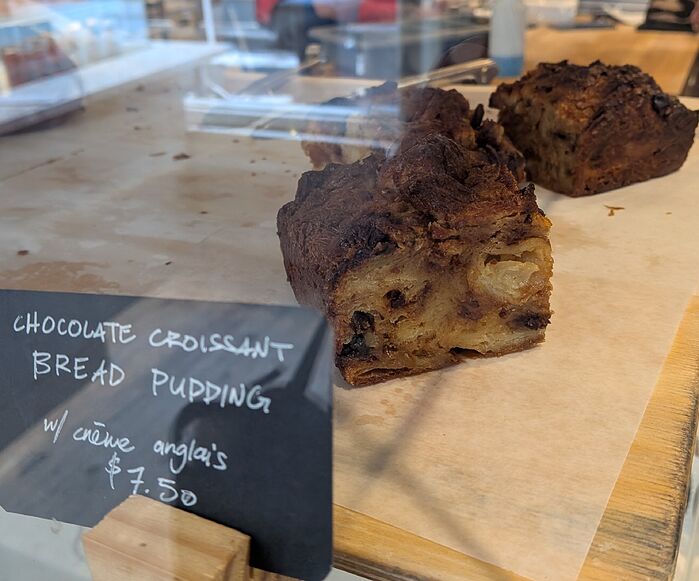 CHOCOLATE CROISSANT
BREAD PUDDING
w/ crēme anglais
$7.50